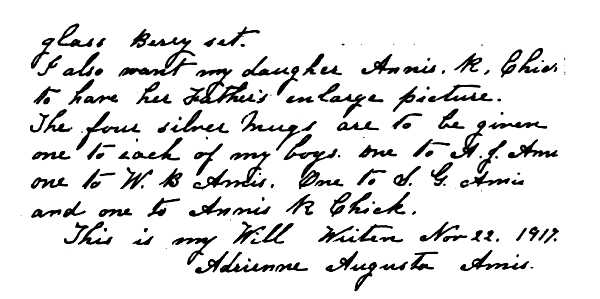 glass Berry set.
I also want my daugher Annis. R. Chick
to have her Father's enlarge picture.
The four silver Mugs are to be given
one to each of my boys. one to A. J. Amis
one to W. B Amis. One to S. G. Amis
and one to Annis R Chick.
This is my Will Writen Nov 22. 1917.
Adrienne Augusta Amis.